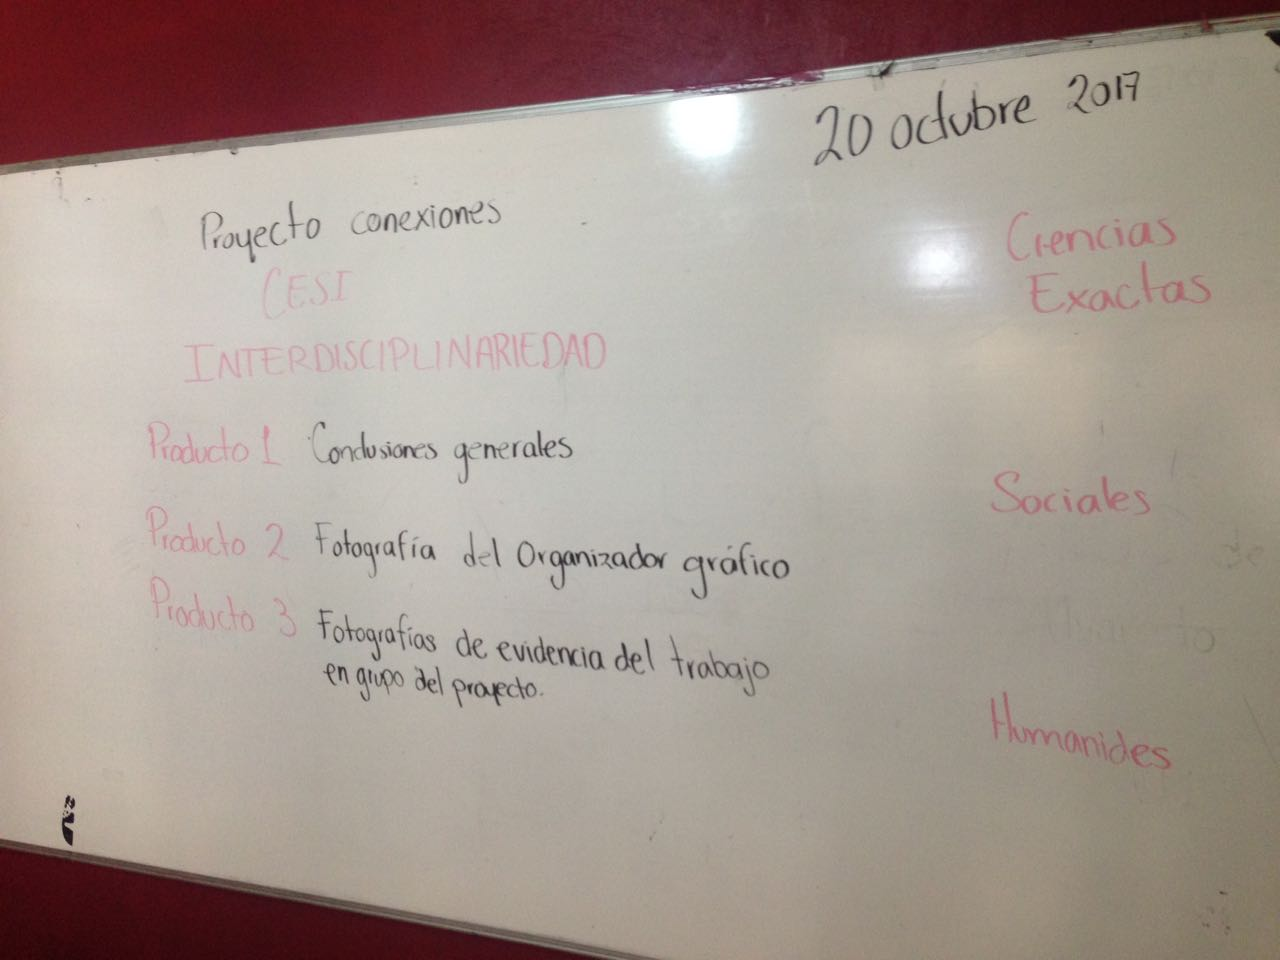 20 octubre 2017
Proyecto conexiones
CESI
INTERDISCIPLINARIEDAD
Producto 1 Conclusiones generales
Producto 2 Fotografía del Organizador gráfico
Producto 3 Fotografías de evidencia del trabajo
en grupo del proyecto.
Ciencias
Exactas
Sociales
Humanides